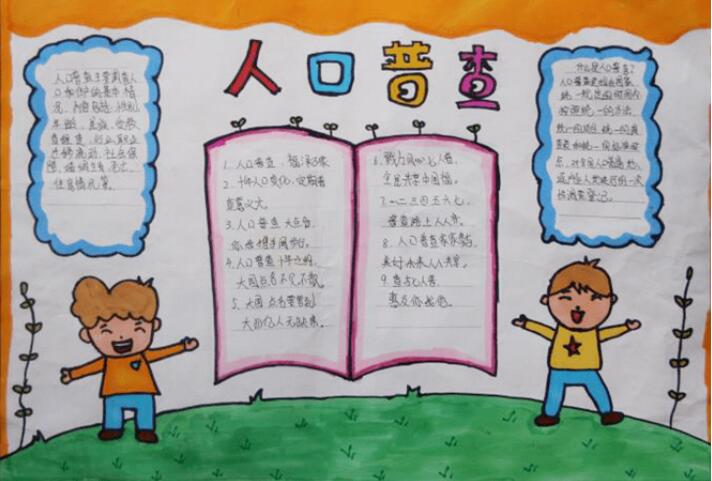 人口普查
人口普查主要调查人
口和住户的基本情
况,内容包括:性别、
年龄、民族、受教
育程度、行业、职业、
迁移流动、社会保
障、婚姻生育、死亡、
住房情况等。
1、人口普查,
2、十年人口变化,定期普
查意义大。
3、人口普查大点名,
4、人口普查十年之约,
大国点名不见不散。
5、大国点名
6、
全民共享中国福。
7、一二三四五六七,
普查路上
8、人口普查家家
美好未来人人共享。
9、查七人普,
惠及你
什么是人口普查?
人口普查是指在国家
统一规定的时间内
按照统一的方法、
统一的项目、统一的调
查表和统一的标准时
点,对全国人口普遍地、
逐户逐人地进行的一次
性调查登记。